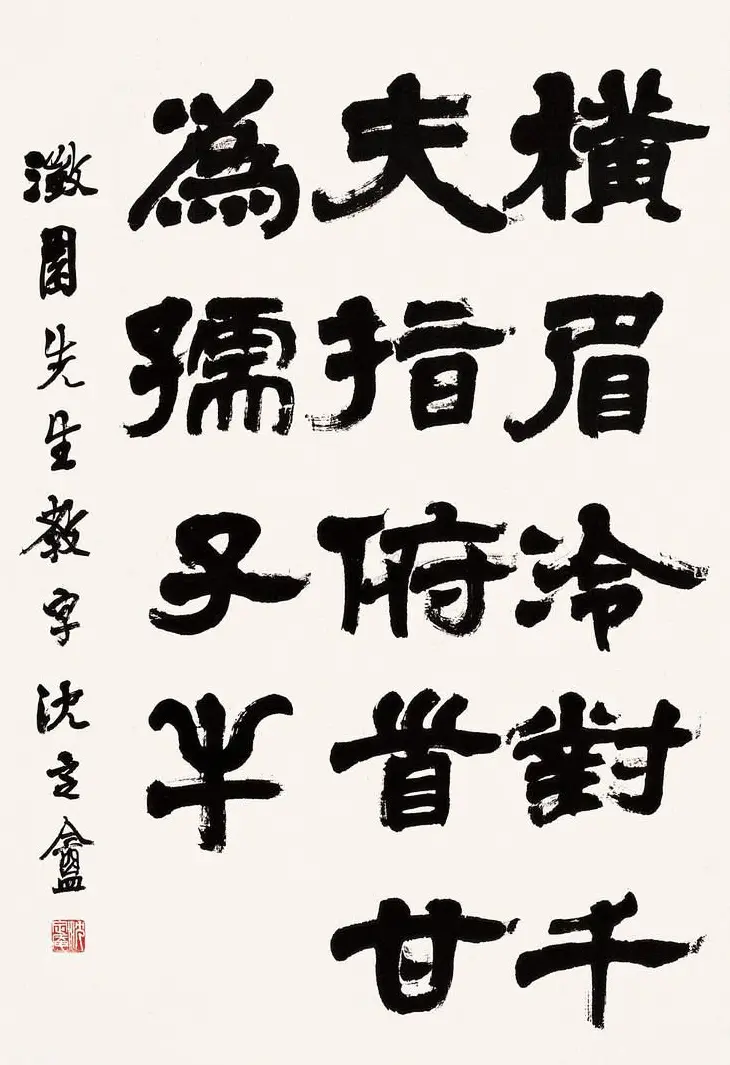 橫眉冷對千
夫指俯首甘
為孺子牛
澂園先生教字 沈定盦